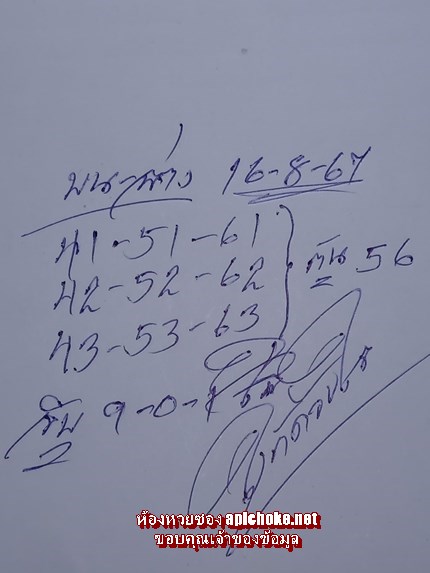 บน-ล่าง 16-8-67
41-51-61
42-52-62 กัน 56
43-53-63
9-0-1
ห้องหวยซอง apichoke.net
ขอบคุณเจ้าของข้อมูล